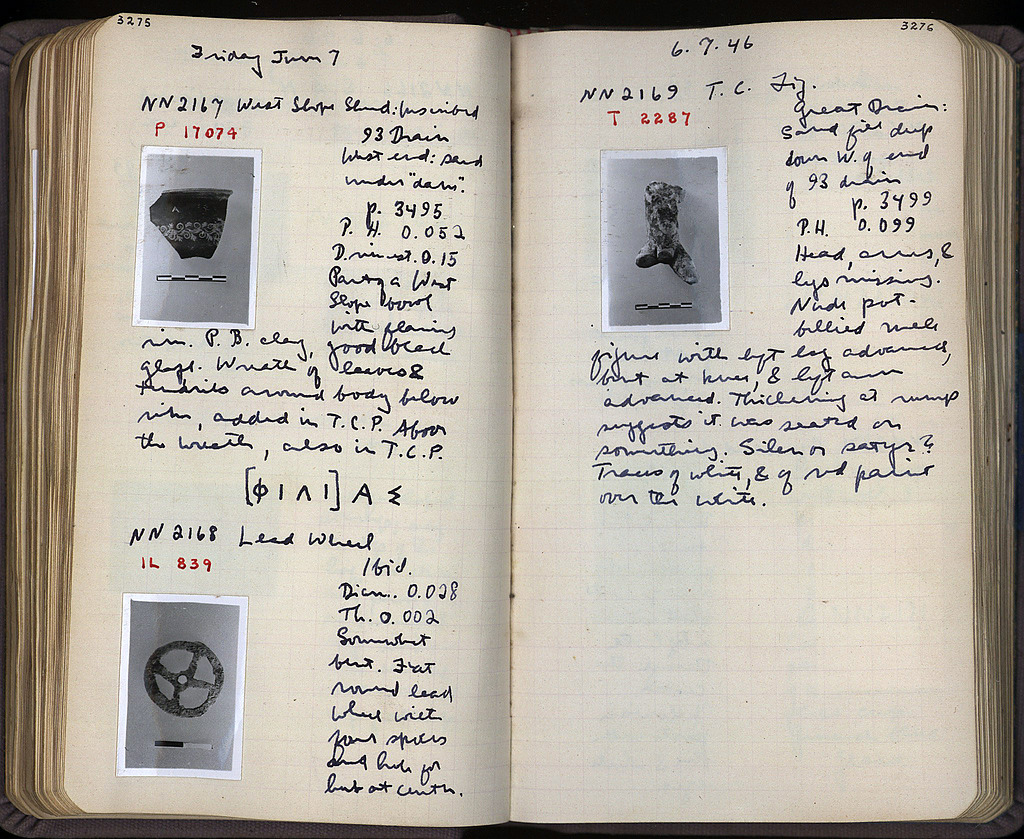 3275
Friday June 7
NN2167 West Slope Sherd: Inscribed
P 17074
93 Drain
West end: sand
under "dam".
p. 3495
P. H. 0.052
D. rim est. 0.15
Part of a West
Slope bowl
with flaring
rim. P. B. clay, good black
glaze. Wreath of leaves &
tendrils around body below
rim, added in T.C.P. Above
the wreath, also in T.C.P.
[Φ Ι Λ Ι] Α Σ
NN 2168 Lead Wheel
IL 839
Ibid.
Diam. 0.028
Th. 0.002
Somewhat
bent. Flat
round lead
wheel with
four spokes
and hole for
hub at center.
3276
6. 7. 46
NN2169 T. C. Fig.
T 2287
Great Drain:
Sand fill deep
down W. of end
of 93 drain
p. 3499
P.H. 0.099
Head, arms, &
legs missing.
Nude pot-
bellied male
figure with left leg advanced,
bent at knee, & left arm
advanced. Thickening at rump
suggests it was seated on
something. Silen or satyr?
Traces of white, & of red paint
over the white.